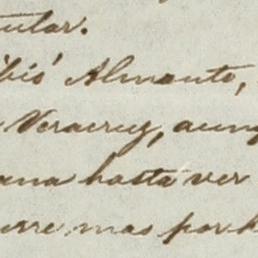 tular.
ibió Almonte,
Veracruz, aunq
ana hasta ver
urre mas por h